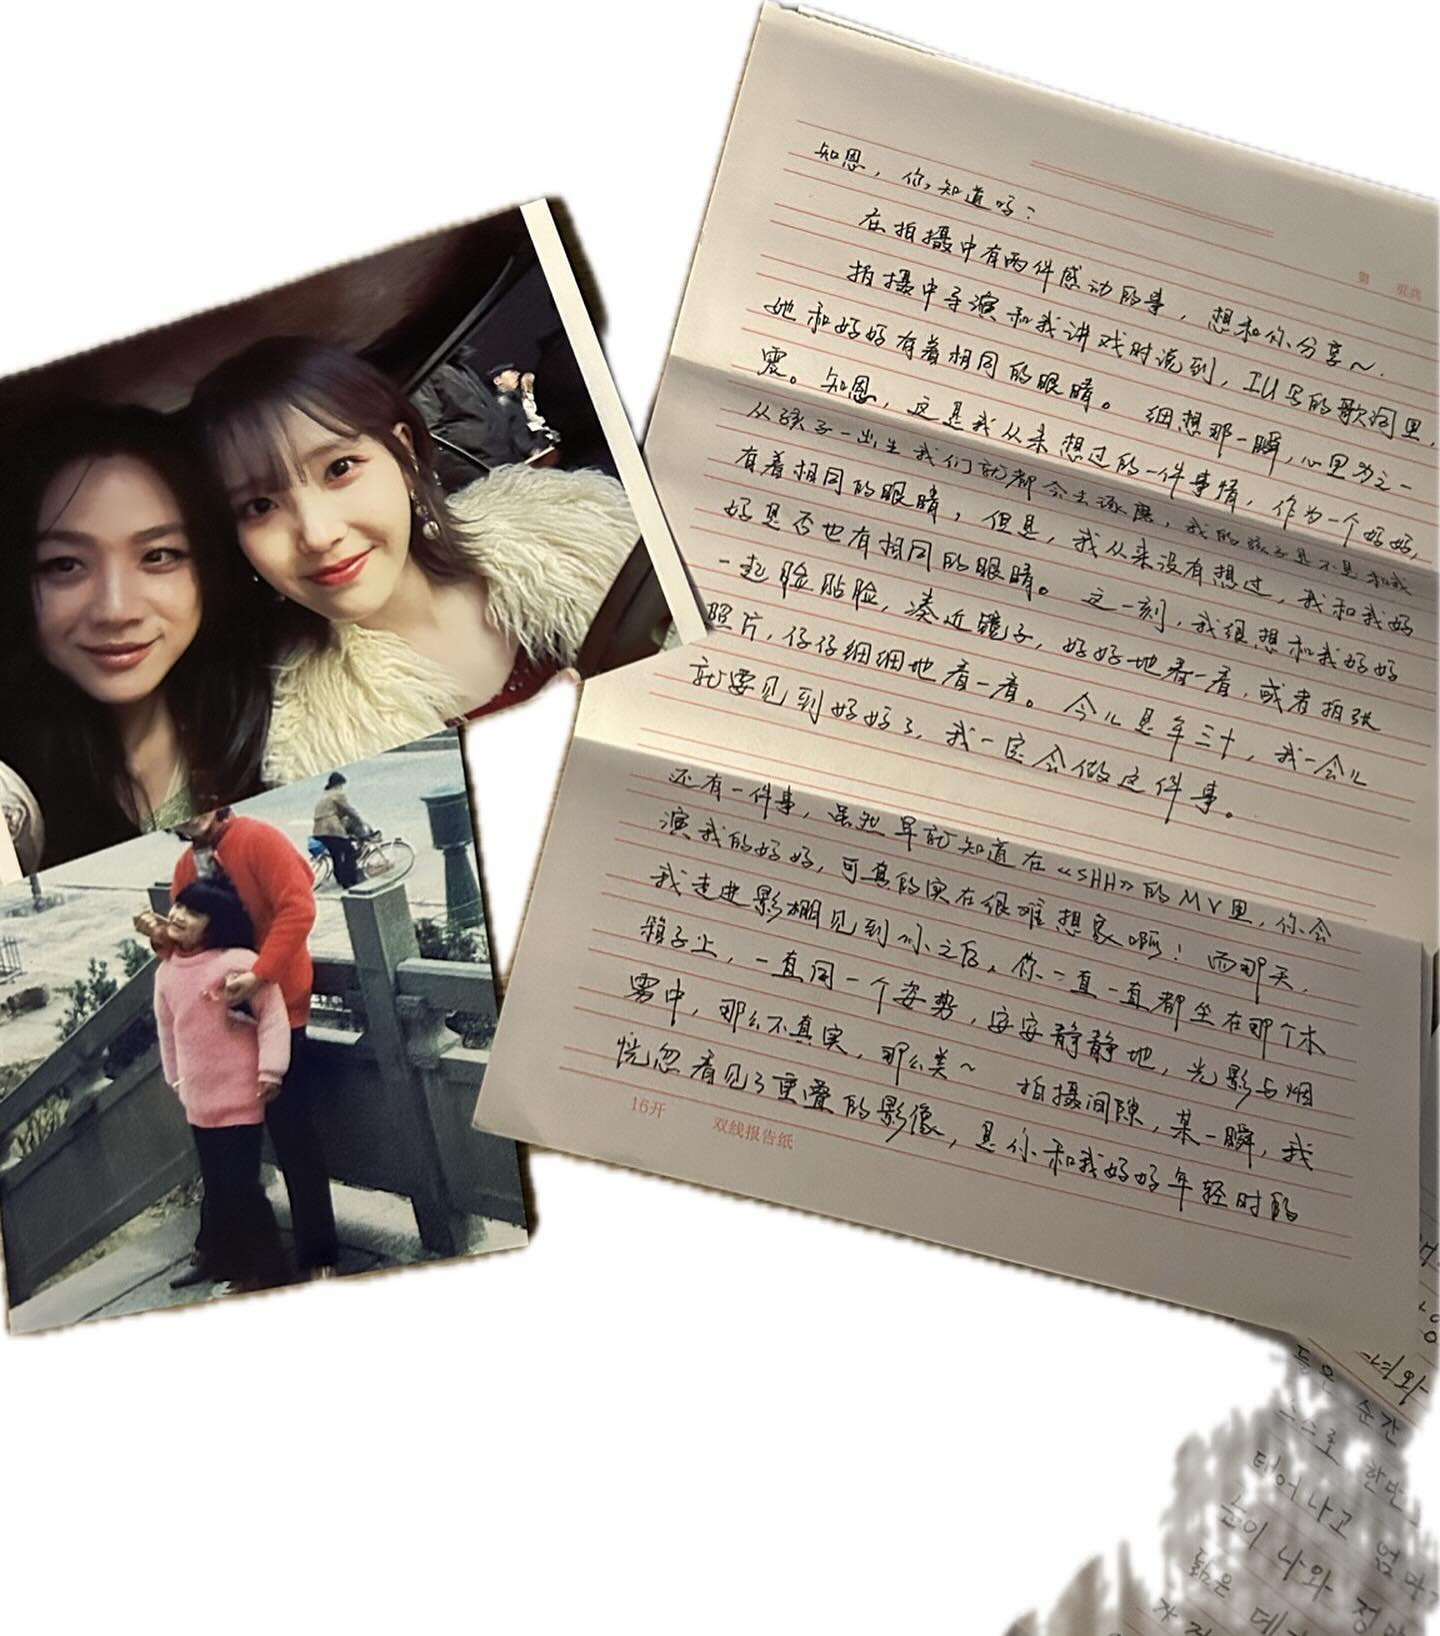 第 页共
知恩，你知道吗？
在拍摄中有两件感动的事，想和你分享～
拍摄中导演和我讲戏时说到，IU写的歌词里，
她和妈妈有着相同的眼睛。细想那一瞬，心里为之一
震。知恩，这是我从未想过的一件事情，作为一个妈妈，
从孩子一出生我们就都会去琢磨，我的孩子是不是和我
有着相同的眼睛，但是，我从来没有想过，我和我妈
妈是否也有相同的眼睛。这一刻，我很想和我妈妈
一起脸贴脸，凑近镜子，好好地看一看，或者拍张
照片，仔仔细细地看一看。今儿是年三十，我一会儿
就要见到妈妈了，我一定会做这件事。
还有一件事，虽然早就知道在《SHH》的MV里，你会
演我的妈妈，可真的实在很难想象啊！而那天，
我走进影棚见到你之后，你一直一直都坐在那个木
箱子上，一直同一个姿势，安安静静地，光影与烟
雾中，那么不真实，那么美～ 拍摄间隙，某一瞬，我
恍忽看见了重叠的影像，是你和我妈妈年轻时的
16开 双线报告纸
순간
스스로
태어나고 엄마
눈이 나와
닮은 데